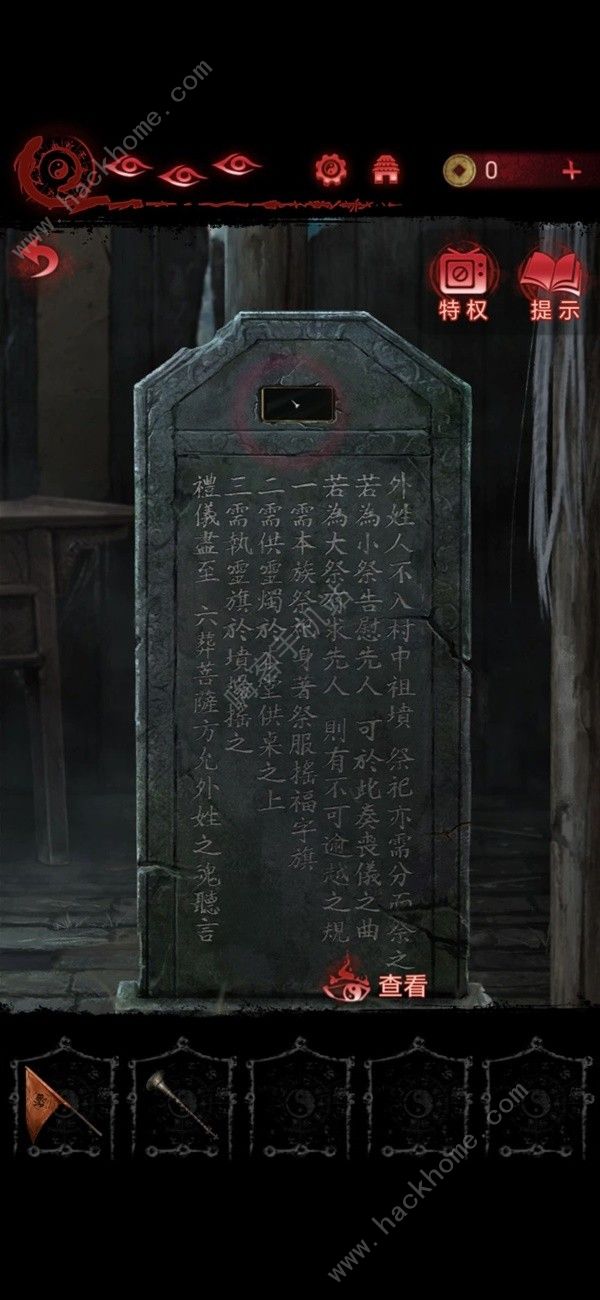 www.hackhome.com
0
特权
提示
外姓人不入村中祖墳 祭祀亦需分而祭之
若為小祭告慰先人 可於此奏喪儀之曲
若為大祭 求先人 則有不可逾越之規
一需本族祭祀身著祭服搖福字旗
二需供靈燭於 堂供桌之上
三需執靈旗於墳 搖之
禮儀盡至 六葬菩薩方允外姓之魂聽言
查看
www.hackhome.com